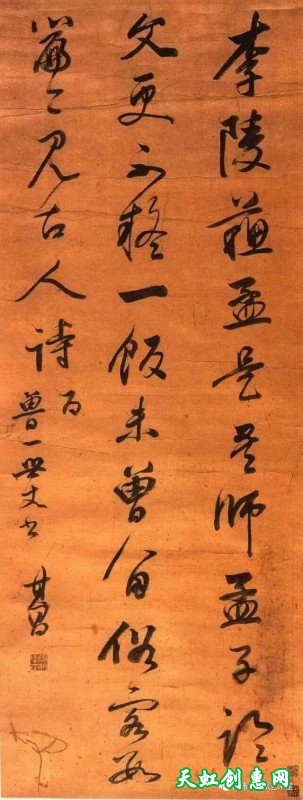 李陵蘓孟是吾師孟子論
文更不疑一飯未曾留俗客數
篇〻見古人詩
魯一世丈書
其昌
天虹创惠网